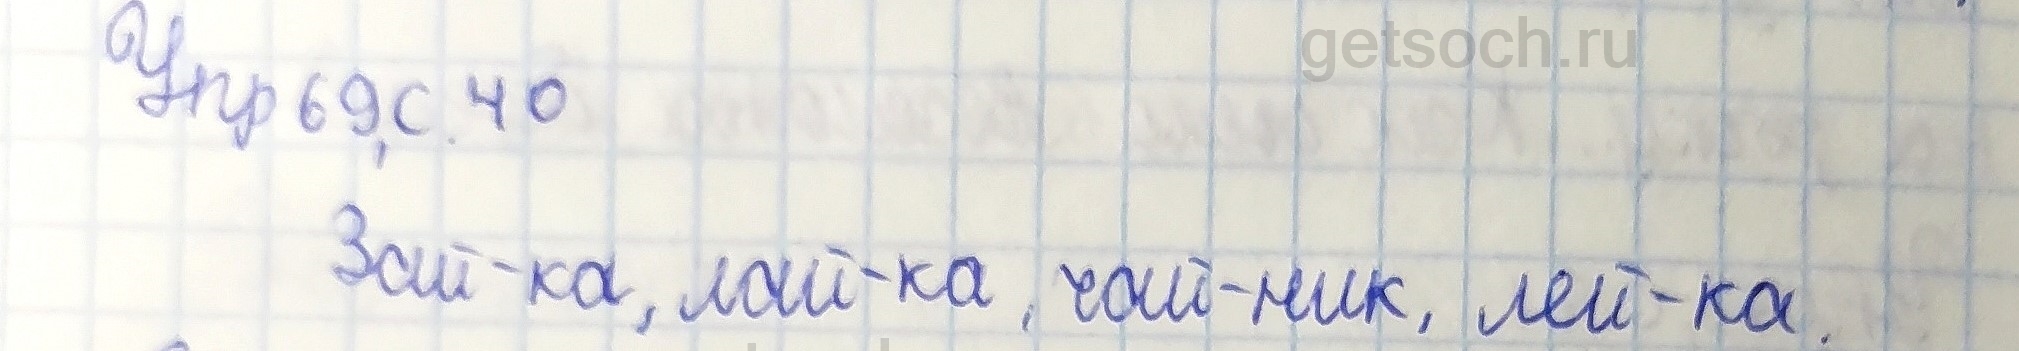 getsoch.ru
Упр 69, с. 40
Зай-ка, лай-ка, чай-ник, лей-ка.